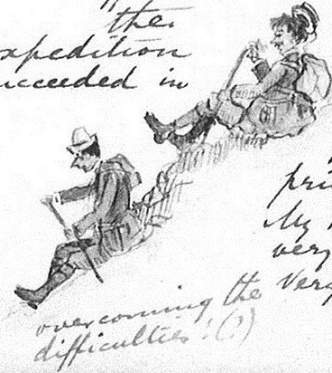 the
expedition
succeeded in
pri
My
very
Very
overcoming the
difficulties! (?)